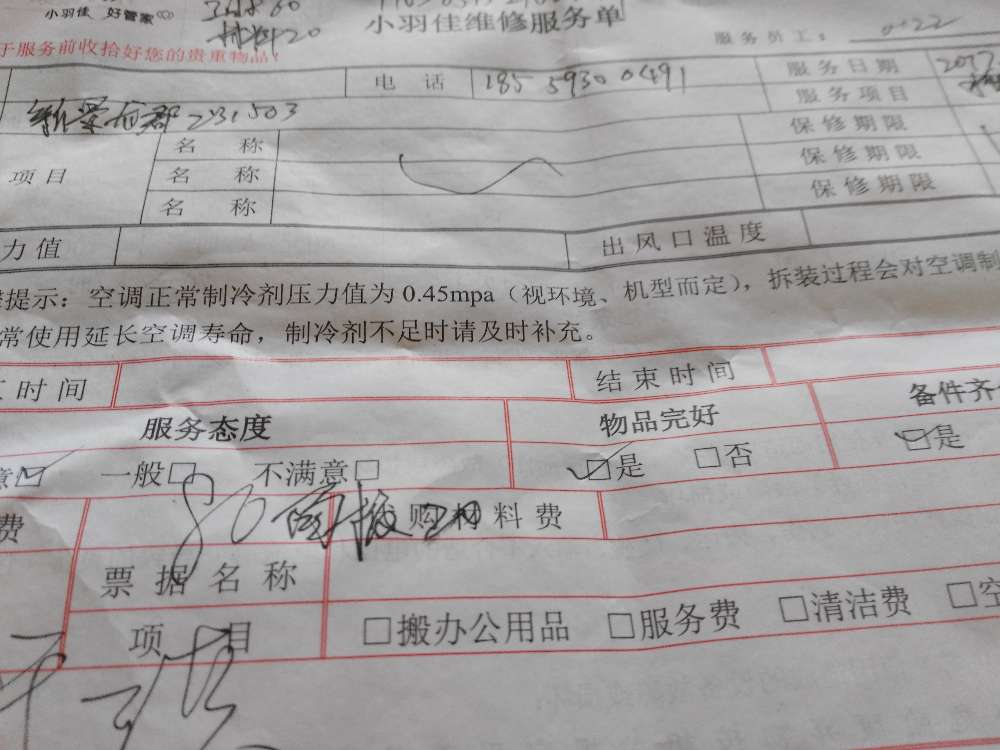 小羽佳 好管家
小羽佳维修服务单
材料20
于服务前收拾好您的贵重物品
服务员工：
电 话 185 5930 0491 服务日期
服务项目
231503
名 称 保修期限
项目 名 称 保修期限
名 称 保修期限
力值 出风口温度
提示：空调正常制冷剂压力值为 0.45mpa（视环境、机型而定），拆装过程会对空调制
常使用延长空调寿命，制冷剂不足时请及时补充。
时间 结束时间
服务态度 物品完好 备件齐
意☑ 一般□ 不满意□ ☑是 □否 ☑是
费 80 购材料费
票据名称
项 目 □搬办公用品 □服务费 □清洁费 □空